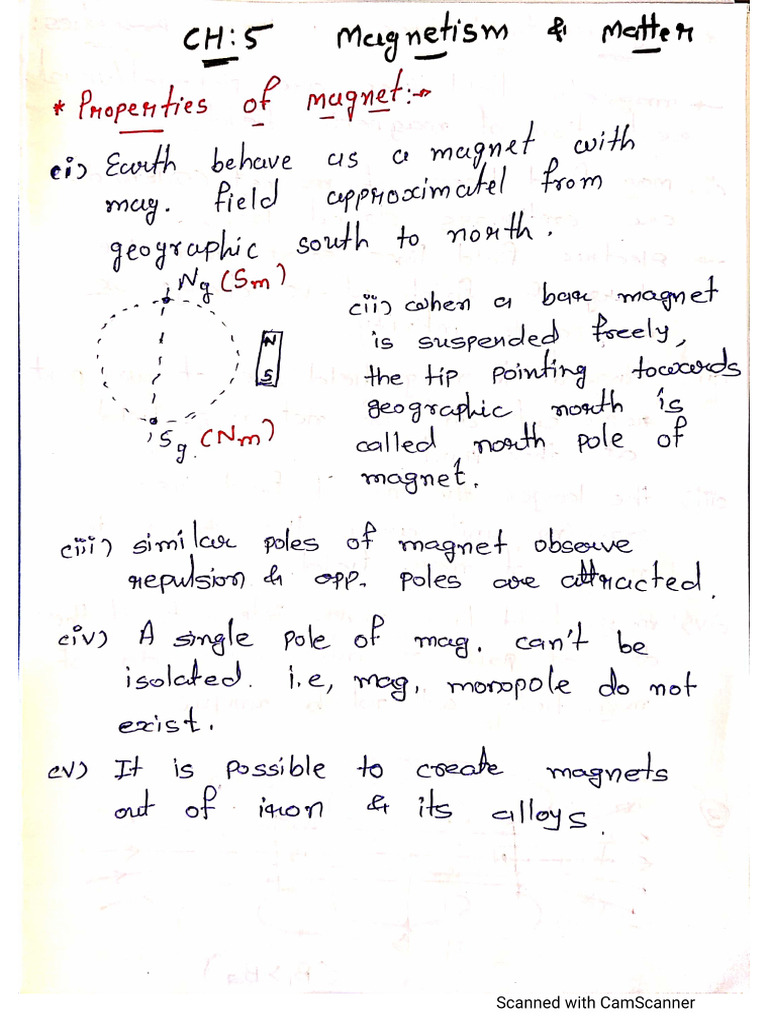 CH:5 Magnetism & Matter
* Properties of magnet:→
(i) Earth behave as a magnet with
mag. field approximatel from
geographic south to north.
Ng (Sm)
N
S
Sg (Nm)
(ii) when a bar magnet
is suspended freely,
the tip pointing towards
geographic north is
called north pole of
magnet.
(iii) similar poles of magnet observe
repulsion & opp. poles are attracted.
(iv) A single pole of mag. can't be
isolated. i.e, mag. monopole do not
exist.
(v) It is possible to create magnets
out of iron & its alloys.
Scanned with CamScanner